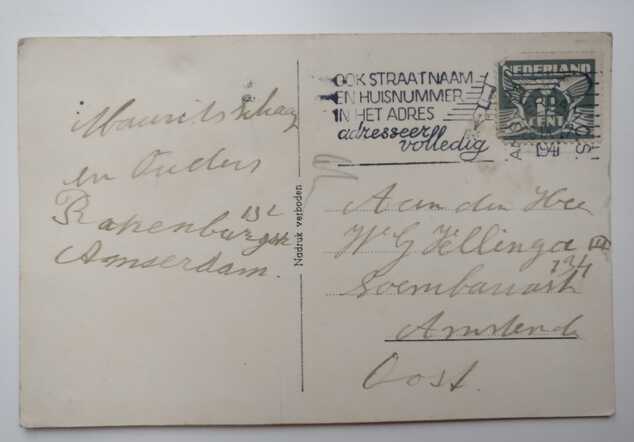 Maurits Schaap
en Ouders
Rapenburgstr 132
Amserdam.
Nadruk verboden
OOK STRAATNAAM
EN HUISNUMMER
IN HET ADRES
adresseer
volledig
NEDERLAND
CENT
1941
Aan den Heer
W G Vellinga
Soembawastr
Amsterda
Oost.